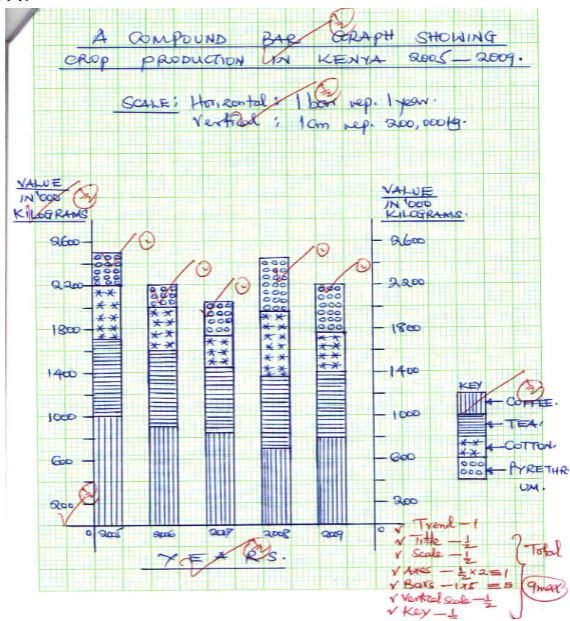 A COMPOUND BAR GRAPH SHOWING
CROP PRODUCTION IN KENYA 2005 — 2009.
SCALE: Horizontal: 1 bar rep. 1 year.
Vertical : 1cm rep. 200,000kg.
VALUE
IN '000
KILOGRAMS
2600
2200
1800
1400
1000
600
200
0
VALUE
IN '000
KILOGRAMS.
2600
2200
1800
1400
1000
600
200
0
2005 2006 2007 2008 2009
YEARS.
KEY
COFFEE.
TEA.
COTTON
PYRETHR
UM.
√ Trend — 1
√ Title — 1/2
√ Scale — 1/2
√ Axes — 1/2 x 2 = 1
√ Bars — 1x5 = 5
√ Vertical scale — 1/2
√ Key — 1/2
Total
9max